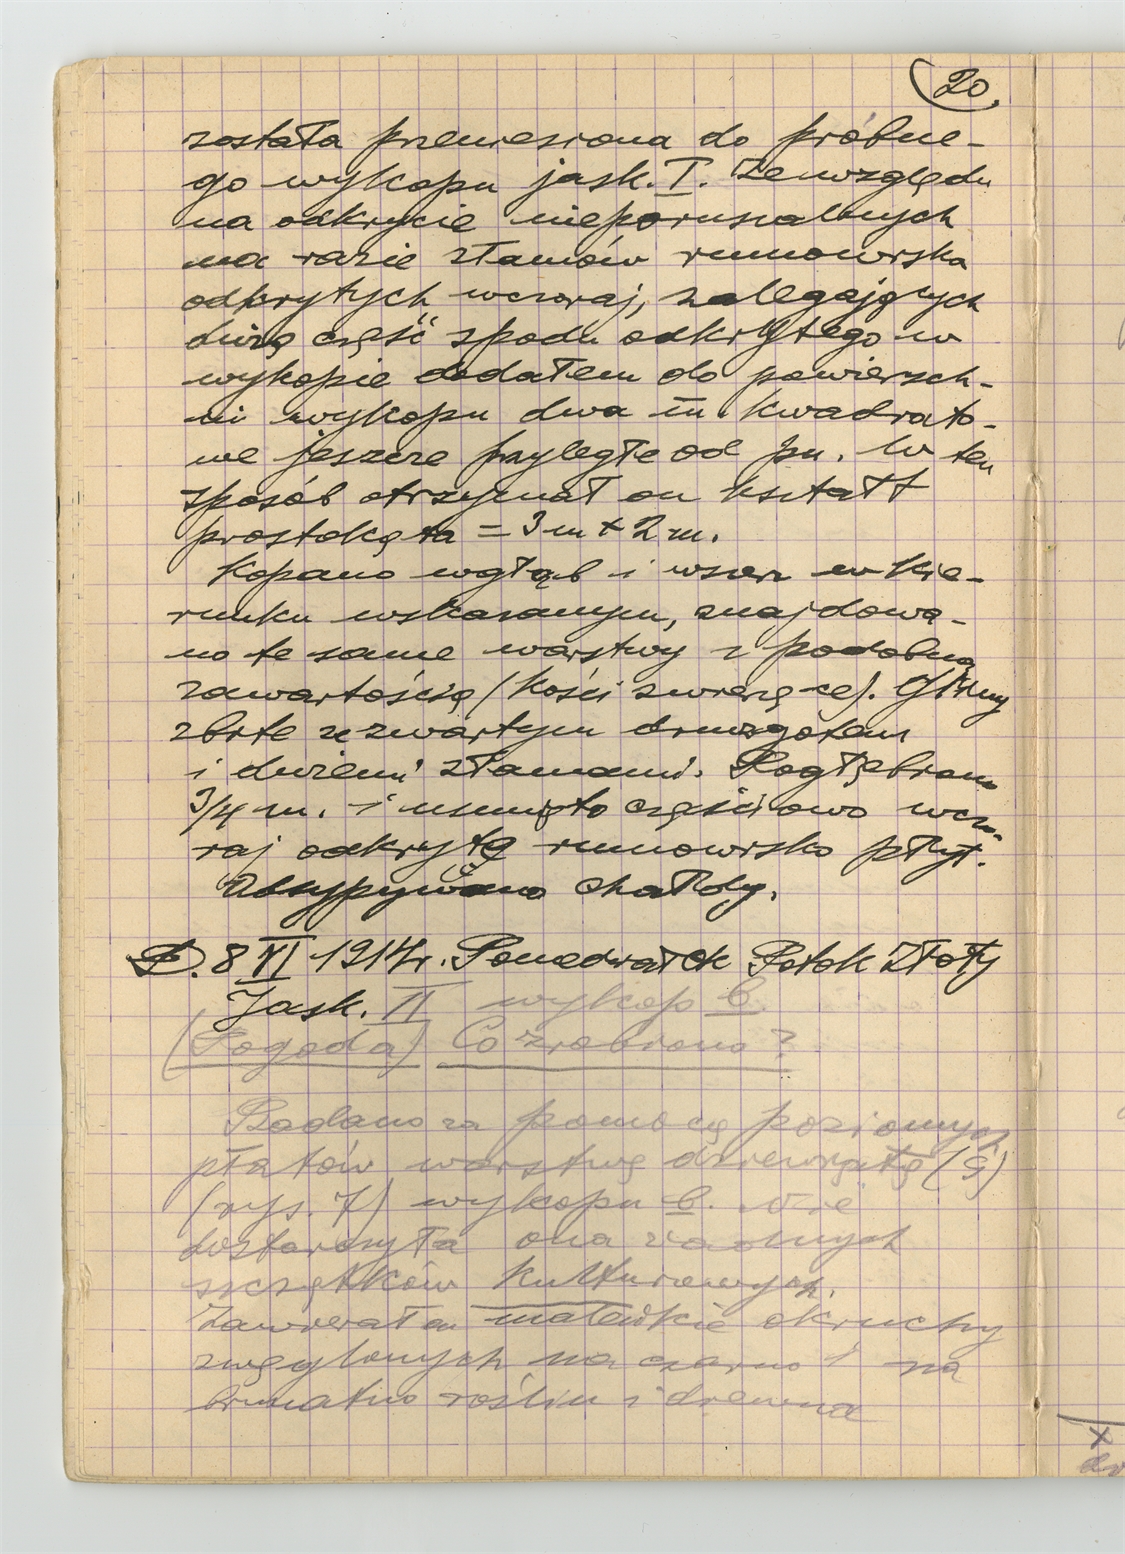 20.
została przeniesiona do próbne-
go wykopu jask. I. Ze względu
na odkrycie nieporuszalnych
na razie złamów rumowiska
odkrytych wczoraj, zalegających
dużą część spodu odkrytego w
wykopie dodałem do powierzch-
ni wykopu dwa m. kwadrato-
we jeszcze przyległe od pn. W ten
sposób otrzymał on kształt
prostokąta = 3 m × 2 m.
Kopano wgłąb i wszerz w kie-
runku wskazanym, znajdowa-
no te same warstwy z podobną
zawartością (kości zwierzęce). Gliny
zbite ze zwartym druzgotem
i dużemi złamami. Pogłębiono
3/4 m. i usunięto częściowo wczo-
raj odkryte rumowisko płyt.
Obsypywano chałdy.
D. 8 VI 1914 r. Poniedziałek Potok Złoty
Jask. II wykop b.
(Pogoda) Co zrobiono?
Badano za pomocą poziomych
płatów warstwę (g)
(rys. 7) wykopu b. Nie
dostarczyła ona żadnych
szczątków kulturowych.
Zawierała maleńkie okruchy
zwęglonych na czarno i na
brunatno roślin i drewna